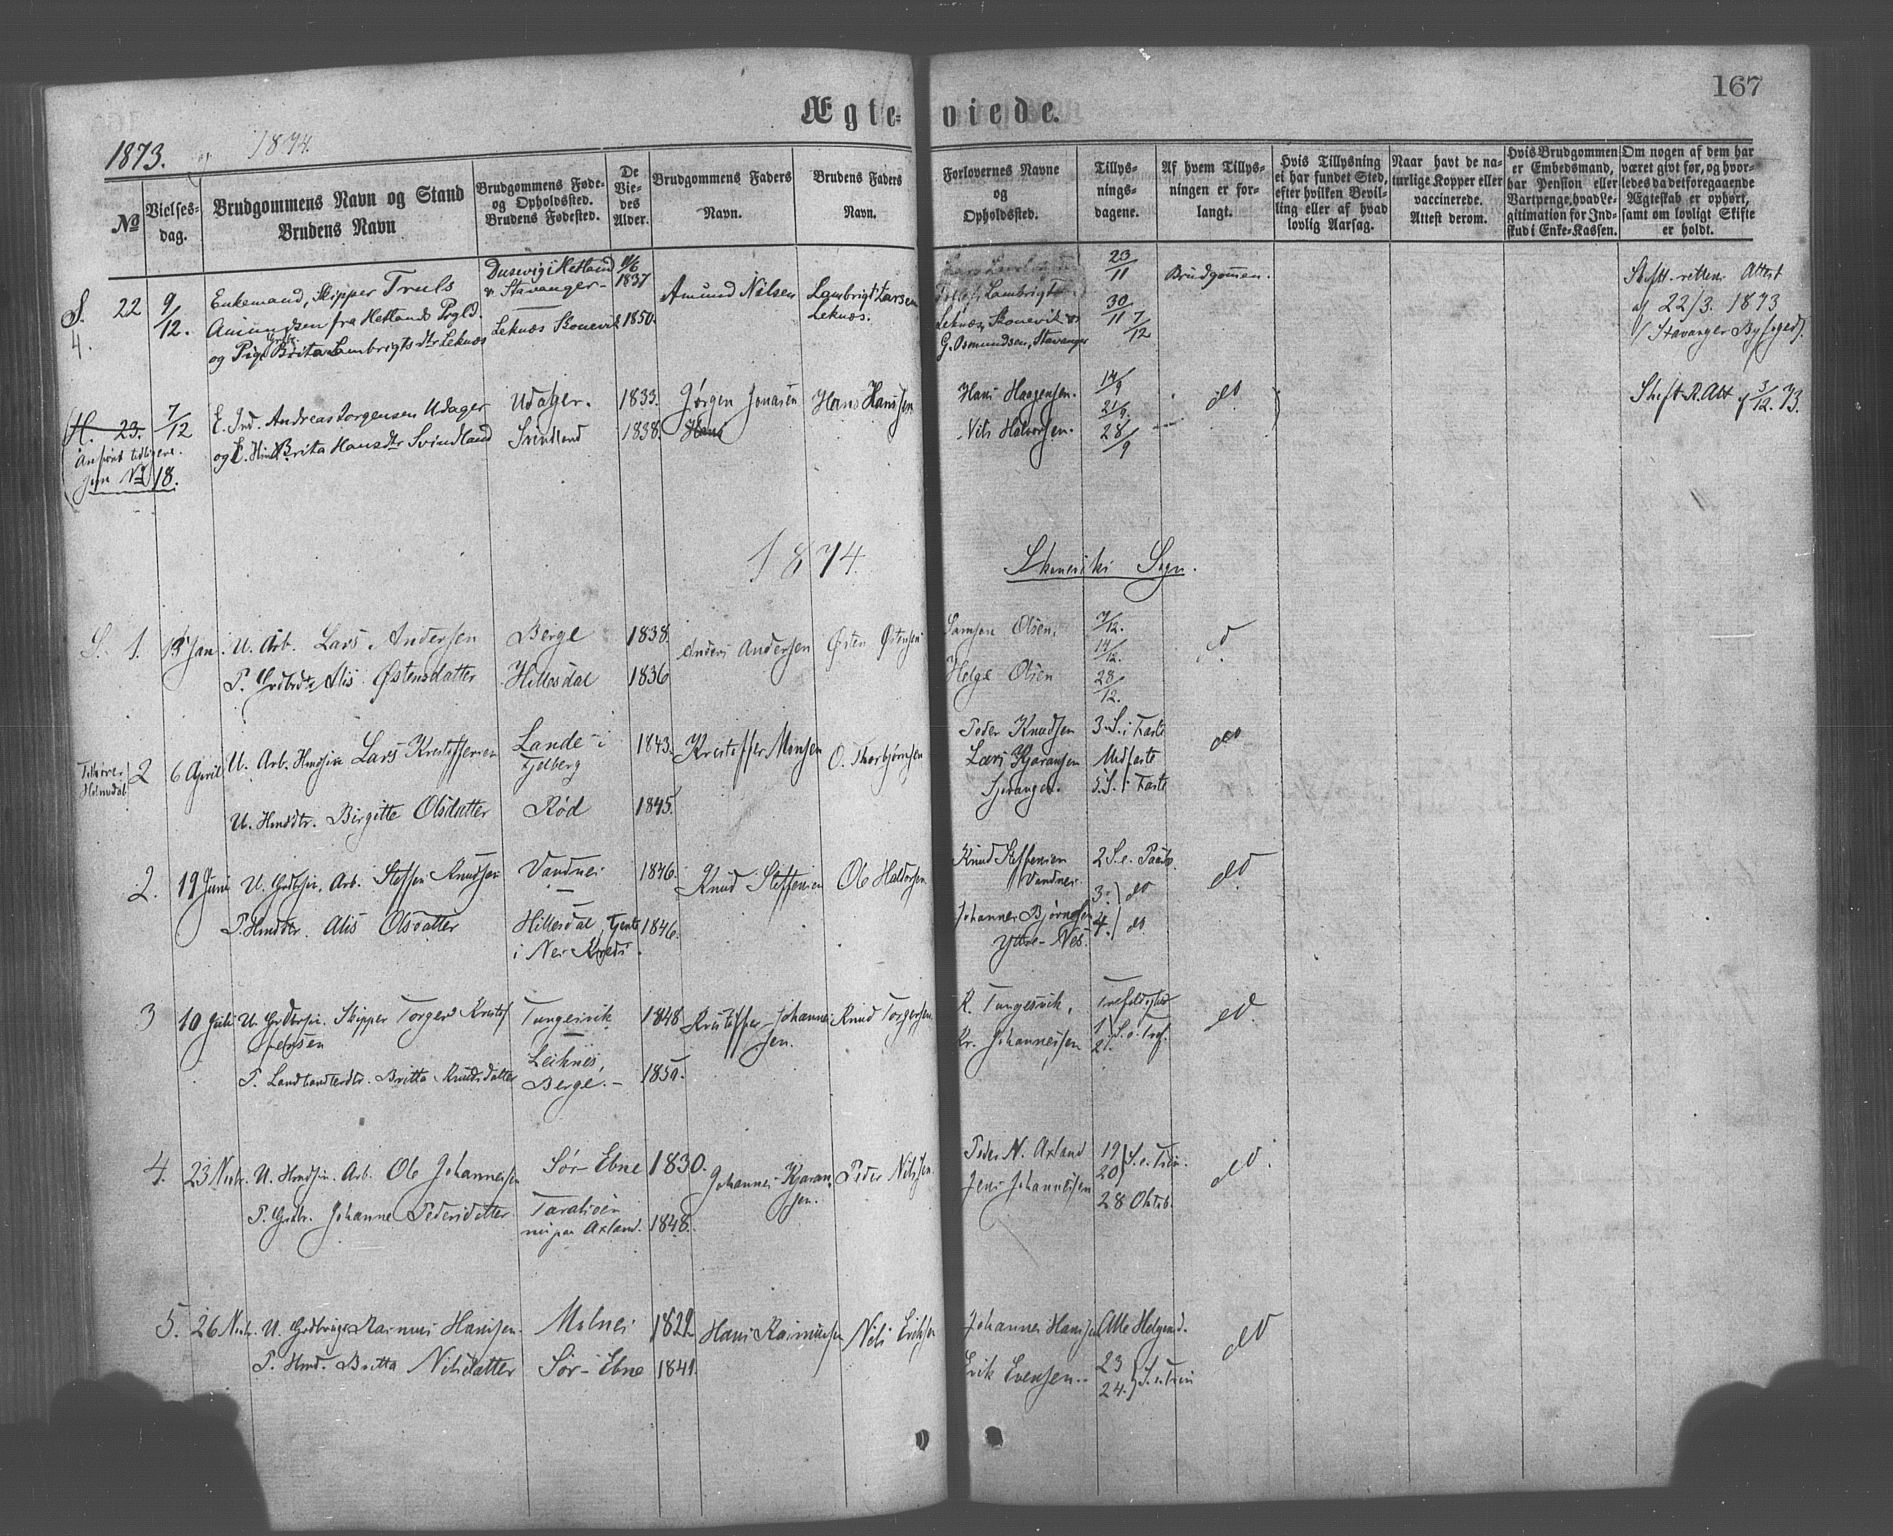 167
Ægte-
viede.
1873. og 1874.
№
Vielses-
dag.
Brudgommens Navn og Stand
Brudens Navn
Brudgommens Føde-
og Opholdssted.
Brudens Fødested.
De
Vie-
des
Alder.
Brudgommens Faders
Navn.
Brudens Faders
Navn.
Forlovernes Navne
og
Opholdssted.
Tillys-
nings-
dagene.
Af hvem Tillys-
ningen er for-
langt.
Hvis Tillysning
ei har fundet Sted,
efter hvilken Bevil-
ling eller af hvad
lovlig Aarsag.
Naar havt de na-
turlige Kopper eller
vaccinerede.
Attest derom.
Hvis Brudgommen
er Embedsmand,
har Pension eller
Vartpenge, hvad Le-
gitimation for Ind-
skud i Enke-Kassen.
Om nogen af dem har
været givt før, og hvor-
ledes da det foregaaende
Ægteskab er ophørt,
samt om lovligt Skifte
er holdt.
S. 22
4.
9/12.
Enkemand, Skipper Truls
Amundsen fra Hetlands Prgld.
og Pige Brita Lambrigtsdtr Leknæs
Dusevig i Hetland
v. Stavanger
Leknæs Skonevik
1837
1850.
Amund Nilsen
Lambrigt Larsen
Leknæs.
Lambrigts
Leknæs, Skonevik og
G. Osmundsen, Stavanger
23/11
30/11 7/12
Brudgommen.
Skift-rettens Attest
af 22/3. 1873
H. 23.
Anført tidligere
som № 18.
7/12
E. Ind. Andreas Jorgensen Udager
og E. Brita Hansdtr Svindland
Udager.
Svindland
1833.
1838.
Jørgen Jonasen
Hans
Hans Hansen
Hans Haagensen.
Nils Halvorsen.
14/9
21/9.
28/9
do
Skift-R. Att. 5/12. 73.
1874.
Skonevik Sogn.
S. 1.
Jan.
U. Arb. Lars Andersen
P. Grdbrdtr. Alis Østensdatter
Berge
Hillesdal
1838.
1836
Anders Andersen
Østen Østensen
Samson Olsen,
Helge Olsen
7/12.
14/12.
28/12.
do
2
6 April
U. Arb. Hmdsøn Lars Kristoffersen
U. Hmddtr. Birgitte Olsdatter
Lande i
Fjelberg
Rød
1843.
1845.
Kristoffer Monsen
O. Thorbjørnsen
Peder Knudsen
Lars Kjaransen
3. S. i Faste
Midfaste
5. S. i Faste
do
2.
19 Juni
U. Grdbrsøn. Arb. Steffen Knudsen
P. Hmddtr. Alis Olsdatter
Vandnes
Hillesdal,
1846.
1846.
Knud Steffensen
Ole Haldorsen
Knud Steffensen
Vandnes
Johannes Bjørnsen
Ytre-Nes.
2 S. e. Paaske
3. do
4. do
do
3
10 Juli
U. Grdbrsøn. Skipper Torger Kristof
fersen
P. Landhandlerdtr. Britta Knudsdatter
Tungesvik
Leiknes,
Berge.
1848
1850.
Kristoffer Johannes-
sen.
Knud Torgersen.
K. Tungesvik,
Kr. Johannessen
do
4.
23 Novbr.
U. Hmdsøn. Arb. Ole Johannesen
P. Grdbr. Johanne Pedersdatter
Sør-Ebne
1830.
1848.
Johannes Kjaran-
sen.
Peder Nilssen.
Peder N. Axland
Jens Johannessen
19
20 S. e. Trin.
28 Oktob.
do
5.
26 Novbr.
U. Grdbruger Rasmus Hansen
P. Hmd. Britta Nilsdatter
Milnes
Sør-Ebne
1822
1841.
Hans Rasmussen
Nils Erichsen
Johannes Hansen
Erik Evensen.
Alle Helgensd.
23
24. S. e. Trin
do